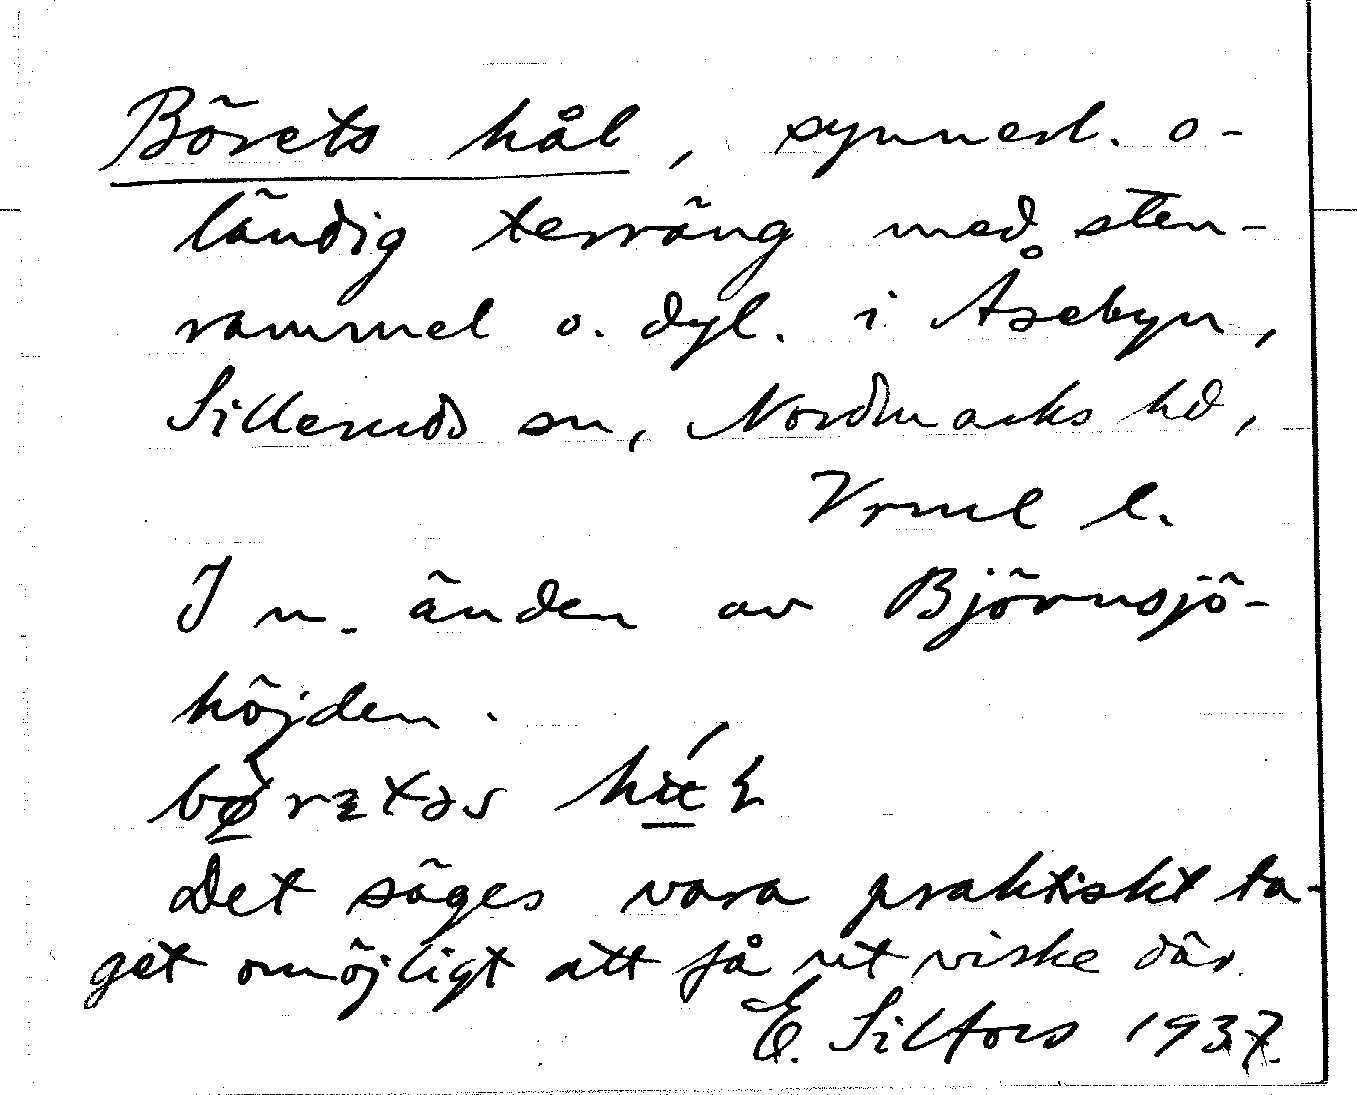 Börets hål, synnerl. o-
ländig terräng med sten-
rammel o. dyl. i Åsebyn,
Silleruds sn, Nordmarks hd,
Vrml l.
I n. änden av Björnsjö-
höjden.
Det säges vara praktiskt ta-
get omöjligt att få ut virke där.
E. Silfors 1937.